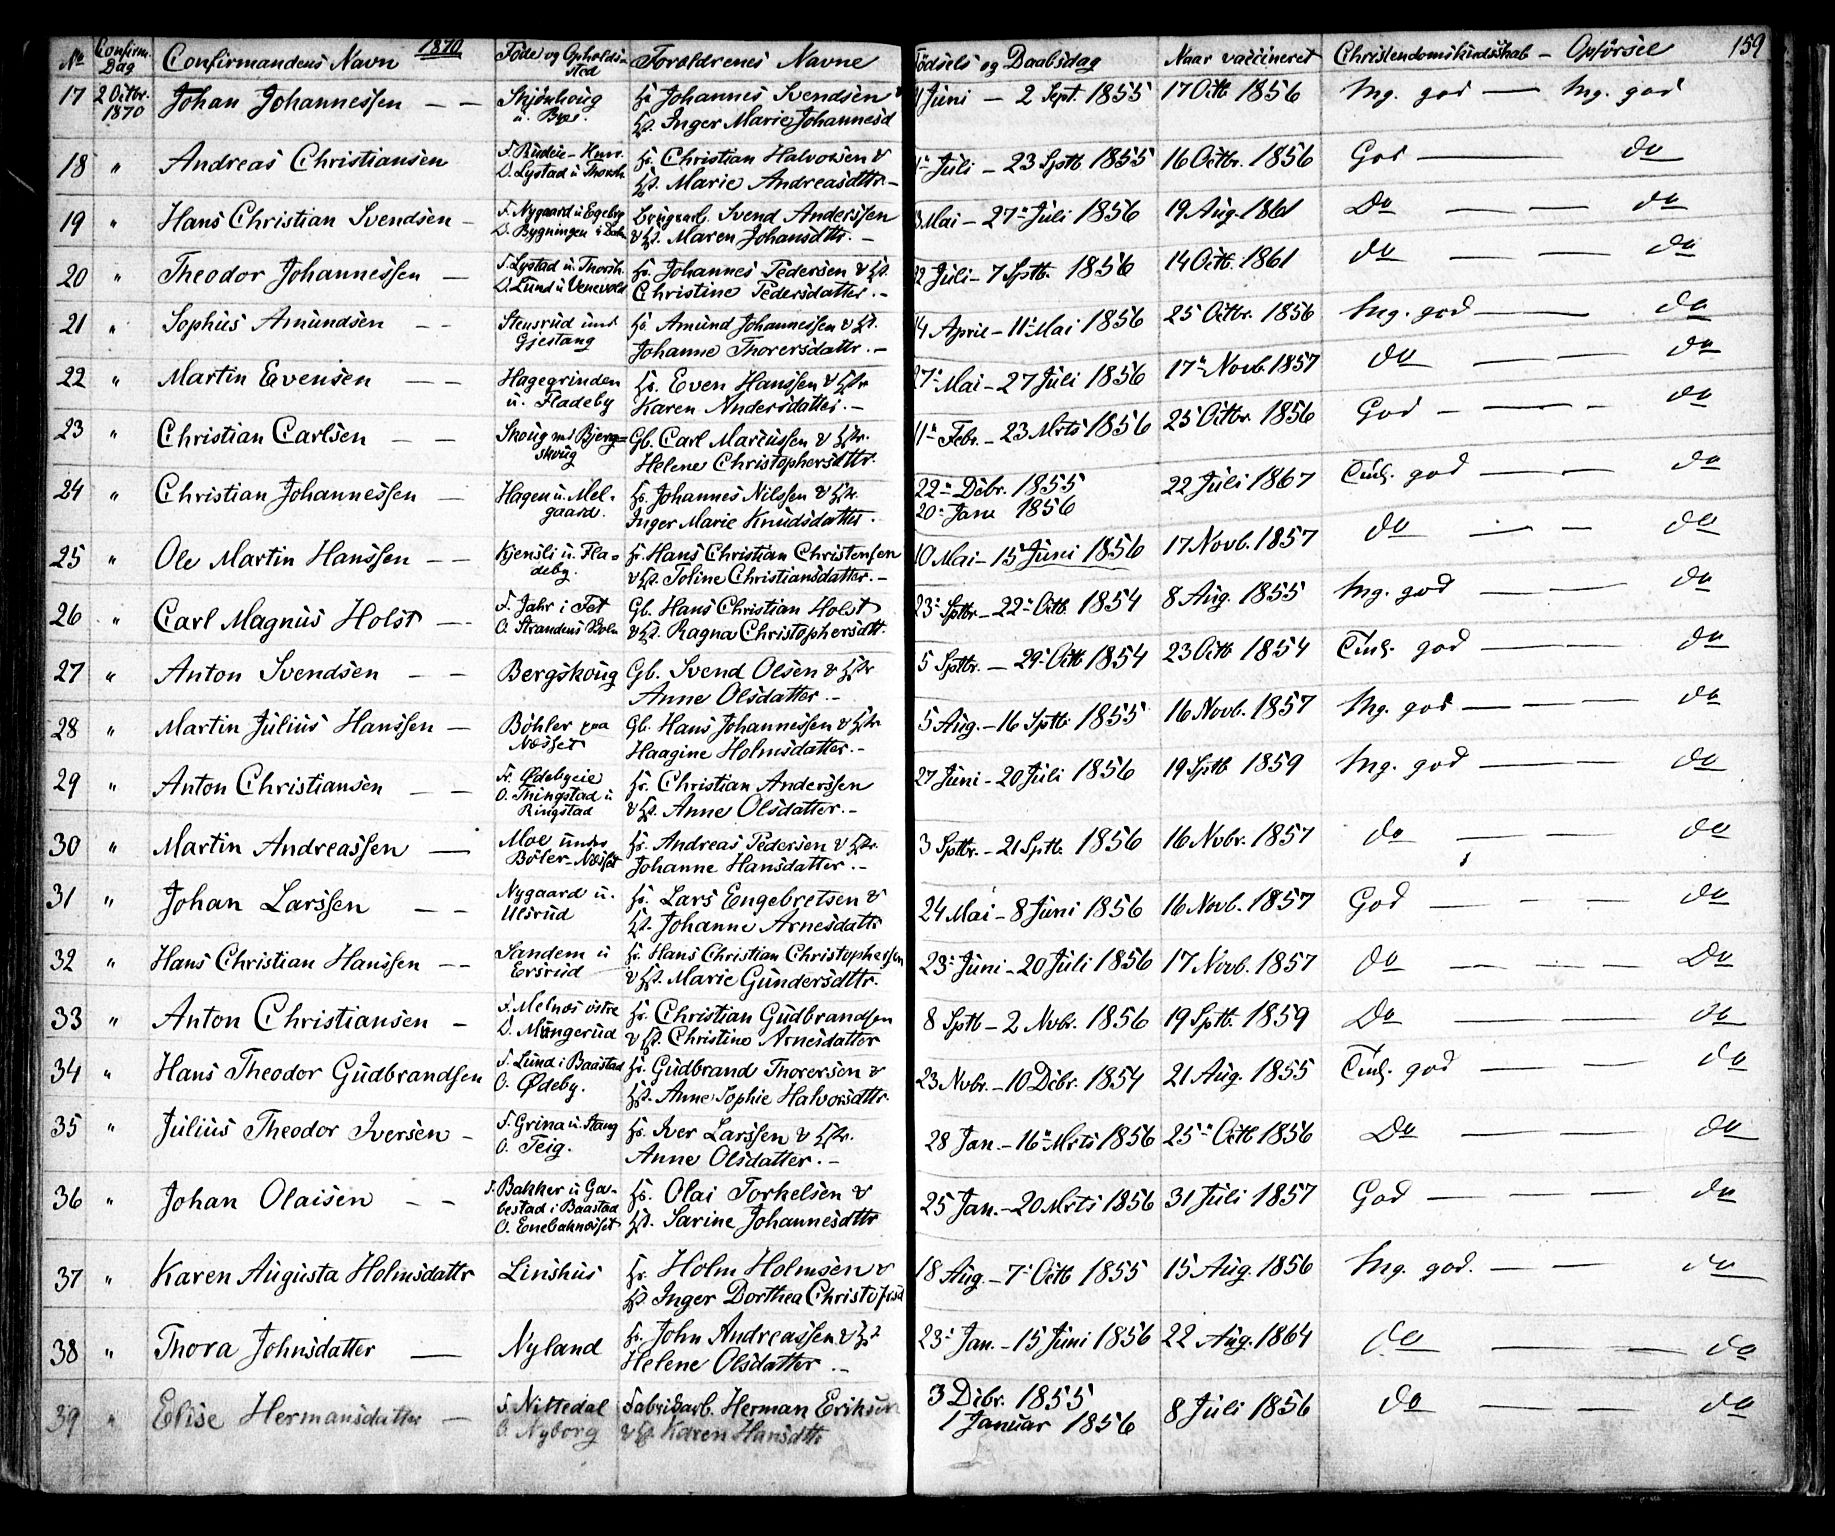 1870 159
No Confirm. Dag Confirmandens Navn Føde og Opholds-sted Forældrenes Navne Fødsels og Daabsdag Naar vaccineret Christendomskundskab - Opførsel
17 2 Octbr. 1870 Johan Johannessen — — Skjønhoug u. Bye. Hr Johannes Svendsen & Hst. Inger Marie Johannesd Juni — 2 Sept. 1855 17 Octb 1856 Mg. god — Mg. god
18 " Andreas Christiansen F. O. Lystad u Thorsh. Hr. Christian Halvorsen & Hst. Marie Andreasdttr. — Juli — 23 Septb 1855 16 Octbr. 1856 God — do
19 " Hans Christian Svendsen — F. Nygaard u Egeberg O. Bygningen i Svend Anderssen & Hst. Maren Johansdttr. — Mai — 27 Juli 1856 19 Aug. 1861 Do — — do
20 " Theodor Johannessen — F. Lystad u. Thorsh. O. Lund u Venevold Hr. Johannes Pedersen & Hst. Christine Pedersdatter. — 22 Juli — 7 Septb. 1856 14 Octb. 1861 do — — — do
21 " Sophus Amundsen — — Stensrud und Gjestang Hr. Amund Johannessen & Hst. Johanne Thorersdattr. — 14 April — 11 Mai 1856 25 Octbr. 1856 Mg. god — — do
22 " Martin Evensen — — Hagegrinden u. Fladeby Hr. Even Hanssen & Hstr Karen Andersdatter. — 27 Mai — 27 Juli 1856 17 Novb. 1857 do — — do
23 " Christian Carlsen — — Skoug md Bjerg=skoug Gb. Carl Marcussen & Hstr. Helene Christophersdttr. 11 Febr. — 23 Mrts 1856 25 Octbr. 1856 God — — — do
24 " Christian Johannessen — Hagen u. Mel-gaard. Hr. Johannes Nilssen & Hstr. Inger Marie Knudsdatter. 22 Dcbr. 1855 20 Janu 1856 22 Juli 1867 Tmlg. god — — do
25 " Ole Martin Hanssen — — Kjensli u. Fla-deby. Hr. Hans Christian Christensen & Hst. Toline Christiansdatter. — 10 Mai — 15 Juni 1856 17 Novb. 1857 do — — do
26 " Carl Magnus Holst — — F. Jahr i Fet O. Gb. Hans Christian Holst & Hst. Ragna Christophersdtt. 23 Septbr. — 22 Octb. 1854 8 Aug. 1855 Mg. god — — do
27 " Anton Svendsen — — Bergskoug Gb. Svend Olsen & Hstr Anne Olsdatter. — 5 Septbr. — 29 Octb 1854 23 Octb 1854 Tmlg. god — — do
28 " Martin Julius Hanssen — Bøhler paa Næsset Gb. Hans Johannessen & Hstr Haagine Holmsdatter. — 5 Aug. — 16 Septbr 1855 16 Novb. 1857 Mg. god — — — do
29 " Anton Christiansen — — F. Ødebyeie O. Thingstad u Ringstad Hr. Christian Anderssen & Hst. Anne Olsdatter. — 27 Juni — 20 Juli 1856 19 Septb 1859 Mg. god — — do
30 " Martin Andreassen — Moe under Böler-Næsset Hr. Andreas Pedersen & Hstr. Johanne Hansdatter. — 3 Septbr. — 21 Septb. 1856 16 Novbr. 1857 do — — do
31 " Johan Larssen — — Nygaard u. Ulsrud Hr. Lars Engebretsen & Hst. Johanne Arnesdattr 24 Mai — 8 Juni 1856 16 Novb. 1857 God — — — do
32 " Hans Christian Hanssen — — Sandem u Ersrud Hr. Hans Christian Christophersen & Hst. Marie Gundersdttr. 23 Juni — 20 Juli 1856 17 Novb. 1857 do — — — Do
33 " Anton Christiansen — F. Melnæs østre O. Mangerud Hr. Christian Gudbrandsen & Hst. Christine Arnesdatter 8 Septb — 2 Novbr. 1856 19 Septb. 1859 Do — — — do
34 " Hans Theodor Gudbrandsen F. Lund i Baastad O. Ødeby. Hr. Gudbrand Thorersen & Hst. Anne Sophie Halvorsdttr. 23 Novbr. — 10 Dcbr. 1854 21 Aug. 1855 Tmlg. god — — — do
35 " Julius Theodor Iversen — F. Grina u. Stang O. Teig. Hr. Iver Larssen & Hstr. Anne Olsdatter. — 28 Jan. — 16 Mrts 1856 25 Octb 1856 Do — — — do
36 " Johan Olaisen — — F. Bakker u Ga-bestad i Baastad O. Enebaknæsset Hr. Olai Torkelsen & Hst. Sarine Johannesdttr 25 Jan. — 20 Mrts 1856 31 Juli 1857 God — — — do
37 " Karen Augusta Holmsdattr Linshus Hr. Holm Holmsen & Hst. Inger Dorthea Christofrsd 18 Aug. — 7 Octb 1855 15 Aug. 1856 Mg. god. — — do
38 " Thora Johnsdatter — Nyland Hr. John Andreassen & Hst Helene Olsdatter. — 23 Jan. — 15 Juni 1856 22 Aug. 1864 do — — — do
39 " Elise Hermansdatter — F. Nittedal O. Nyborg Fabrikarb. Herman Eriksen & Hst Karen Hansdttr 3 Dcbr. 1855 1 Januar 1856 8 Juli 1856 do — — — do